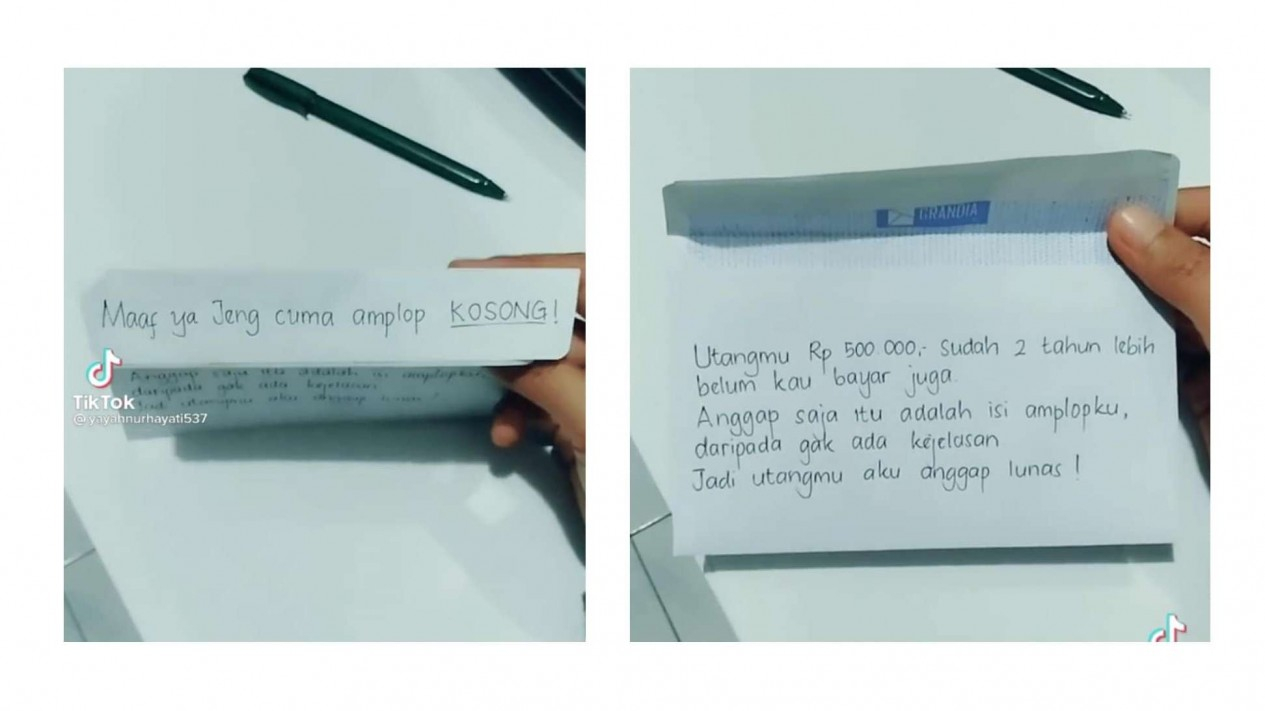 Maaf ya Jeng cuma amplop KOSONG!
Anggap saja itu adalah isi amplopku,
daripada gak ada kejelasan
Jadi utangmu aku anggap lunas!
TikTok
@yayahnurhayati537
GRANDIA
Utangmu Rp 500.000,- sudah 2 tahun lebih
belum kau bayar juga.
Anggap saja itu adalah isi amplopku,
daripada gak ada kejelasan
Jadi utangmu aku anggap lunas !